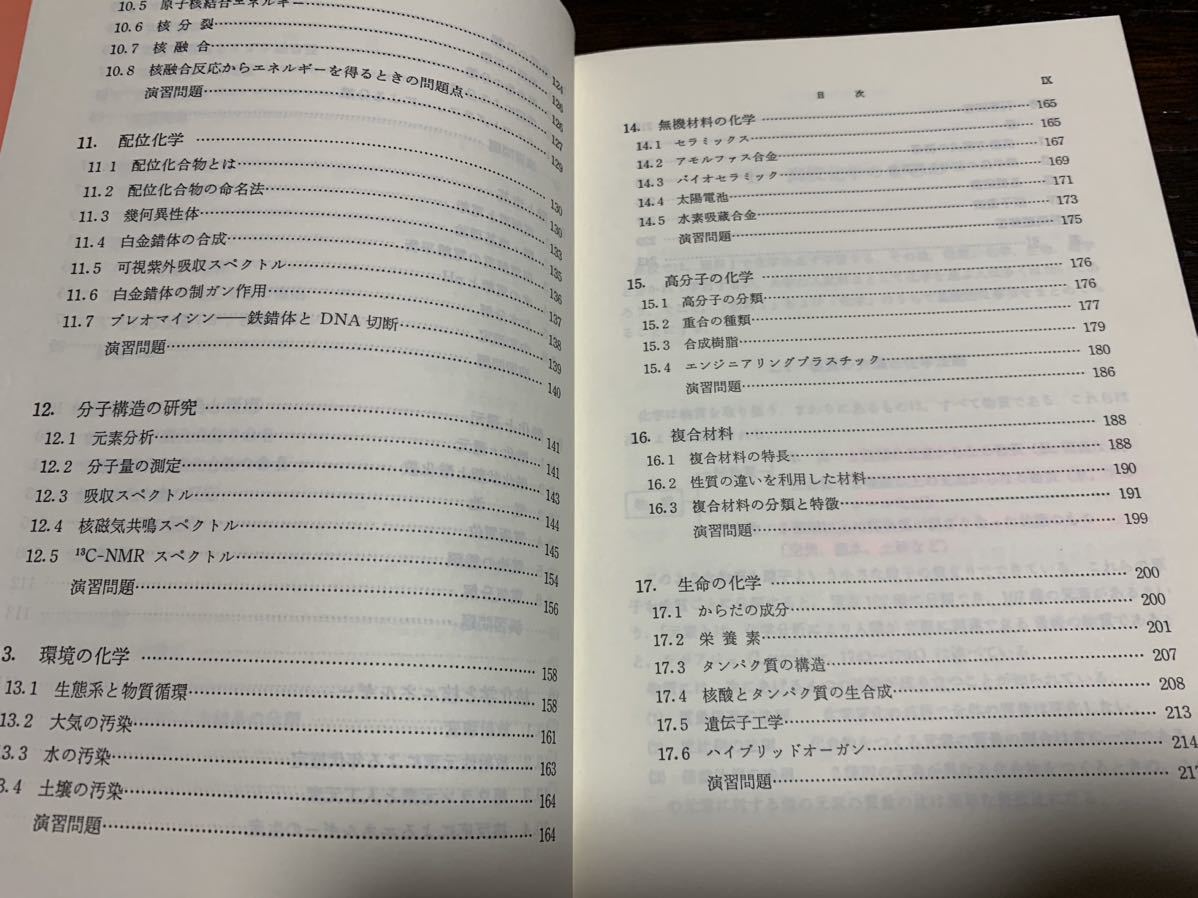 10.5 原子核結合エネルギー 124
10.6 核分裂 126
10.7 核融合 126
10.8 核融合反応からエネルギーを得るときの問題点 127
演習問題 129
11. 配位化学 130
11 1 配位化合物とは 130
11.2 配位化合物の命名法 133
11.3 幾何異性体 135
11.4 白金錯体の合成 136
11.5 可視紫外吸収スペクトル 137
11.6 白金錯体の制ガン作用 138
11.7 ブレオマイシン――鉄錯体と DNA 切断 139
演習問題 140
12. 分子構造の研究 141
12.1 元素分析 141
12.2 分子量の測定 143
12.3 吸収スペクトル 144
12.4 核磁気共鳴スペクトル 145
12.5 ¹³C-NMR スペクトル 154
演習問題 156
3. 環境の化学 158
13.1 生態系と物質循環 158
13.2 大気の汚染 161
3.3 水の汚染 163
3.4 土壌の汚染 164
演習問題 164
目次 IX
14. 無機材料の化学 165
14.1 セラミックス 165
14.2 アモルファス合金 167
14.3 バイオセラミック 169
14.4 太陽電池 171
14.5 水素吸蔵合金 173
演習問題 175
15. 高分子の化学 176
15.1 高分子の分類 176
15.2 重合の種類 177
15.3 合成樹脂 179
15.4 エンジニアリングプラスチック 180
演習問題 186
16. 複合材料 188
16.1 複合材料の特長 188
16.2 性質の違いを利用した材料 190
16.3 複合材料の分類と特徴 191
演習問題 199
17. 生命の化学 200
17.1 からだの成分 200
17.2 栄養素 201
17.3 タンパク質の構造 207
17.4 核酸とタンパク質の生合成 208
17.5 遺伝子工学 213
17.6 ハイブリッドオーガン 214
演習問題 217